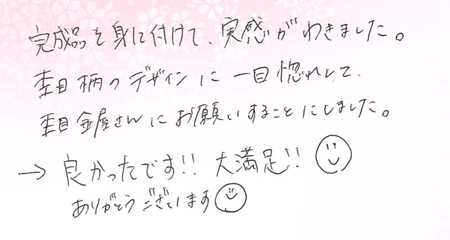 完成品を身に付けて、実感がわきました。
杢目柄のデザインに一目惚れして、
杢目金屋さんにお願いすることにしました。
→ 良かったです!! 大満足!!
ありがとうございます